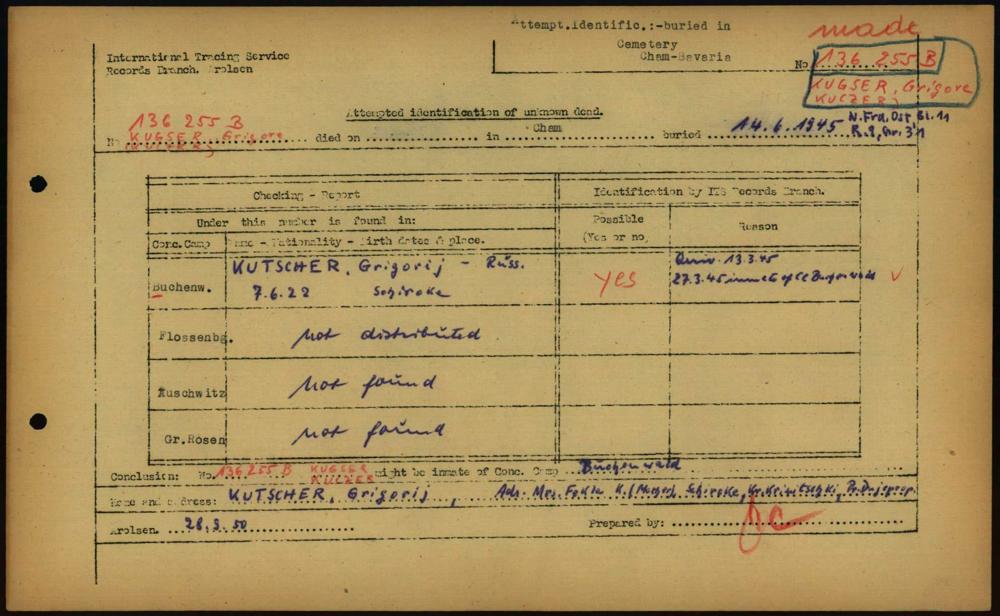 Attempt.Identific.:-buried in
Cemetery
Cham-Bavaria
made
International Tracing Service
Records Branch. Arolsen
No 136 255 B
KUGSER, Grigore
KUCZER,
Attempted identification of unknown dead.
136 255 B
KUGSER, Grigore
No died on in Cham buried 14.6.1945 N.Frd.Ost, Bl.11
R.9, Nr.31
Checking - Report
Identification by ITS Records Branch.
Under this number is found in:
Possible
(Yes or no)
Reason
Conc.Camp
Name - Nationality - Birth dates & place.
Buchenw.
KUTSCHER, Grigorij - Russ.
7.6.22 Schiroke
yes
13.3.45
27.3.45
Flossenbg.
not distributed
Auschwitz
not found
Gr.Rosen
not found
Conclusion: No. 136 255 B KUGSER KUCZER might be inmate of Conc. Camp Buchenwald
Name and address: KUTSCHER, Grigorij, Adr. Mrs. Fekla K. Schiroke,
Arolsen. 28.3.50
Prepared by: